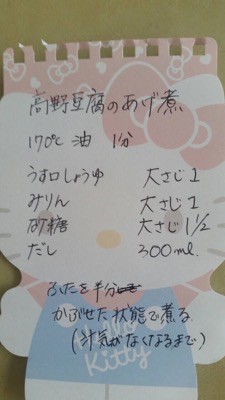 高野豆腐のあげ煮
170℃ 油 1分
うす口しょうゆ 大さじ1
みりん 大さじ1
砂糖 大さじ1/2
だし 300ml.
ふたを半分
かぶせた状態で煮る
(汁気がなくなるまで)
Kitty